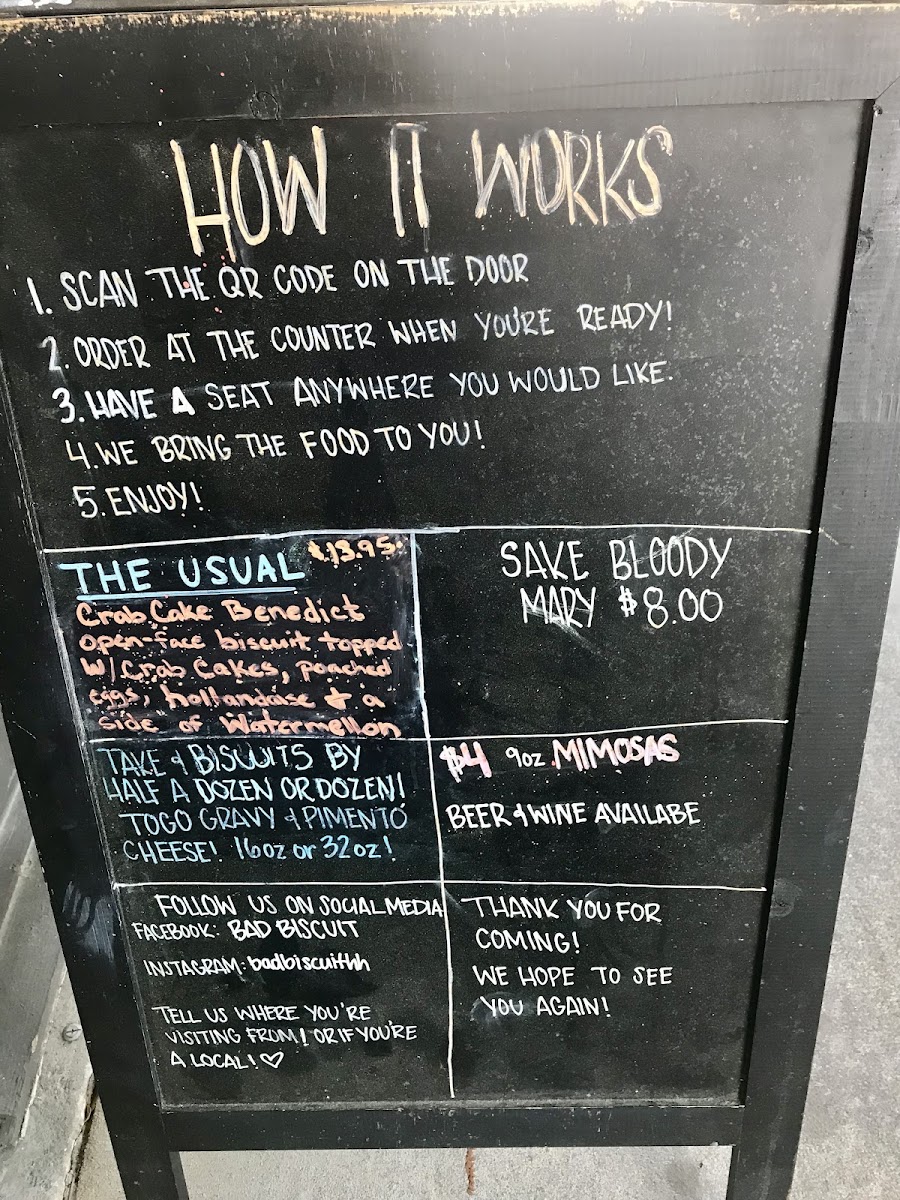 HOW IT WORKS
1. SCAN THE QR CODE ON THE DOOR
2. ORDER AT THE COUNTER WHEN YOU'RE READY!
3. HAVE A SEAT ANYWHERE YOU WOULD LIKE.
4. WE BRING THE FOOD TO YOU!
5. ENJOY!
THE USUAL $13.95
Crab Cake Benedict
open-face biscuit topped
w/ Crab Cakes, poached
eggs, hollandaise & a
side of Watermellon
SAKE BLOODY
MARY $8.00
TAKE & BISCUITS BY
HALF A DOZEN OR DOZEN!
TOGO GRAVY & PIMENTO
CHEESE! 16oz or 32oz!
$4 9oz MIMOSAS
BEER & WINE AVAILABE
FOLLOW US ON SOCIAL MEDIA
FACEBOOK: BAD BISCUIT
INSTAGRAM: badbiscuithh
TELL US WHERE YOU'RE
VISITING FROM! OR IF YOU'RE
A LOCAL! ♡
THANK YOU FOR
COMING!
WE HOPE TO SEE
YOU AGAIN!